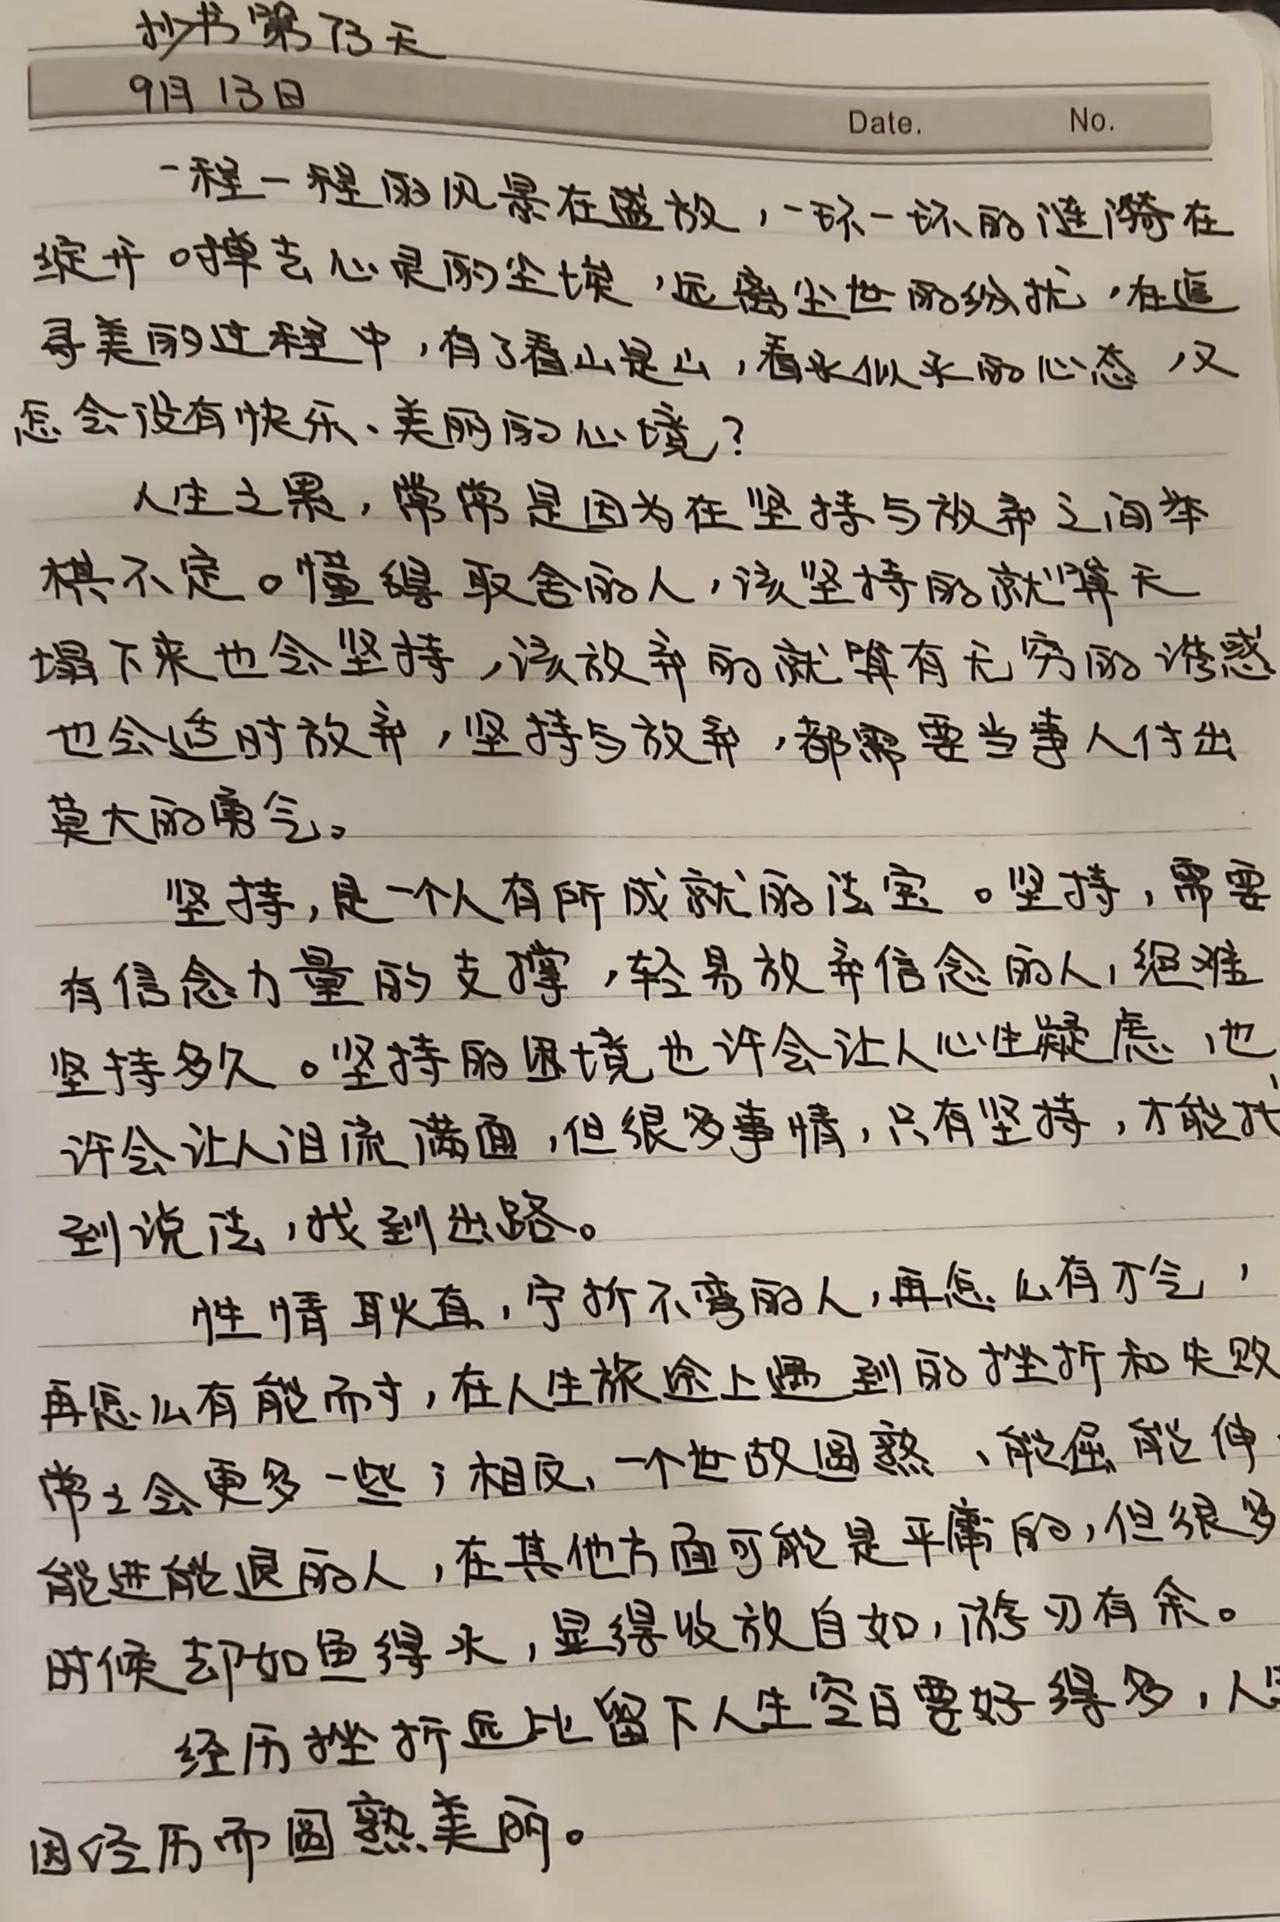 抄书第73天
9月13日
Date. No.
一程一程的风景在盛放，一环一环的涟漪在
绽开。掸去心灵的尘埃，远离尘世的纷扰，在追
寻美丽的过程中，有了看山是山，看水似水的心态，又
怎会没有快乐、美丽的心境？
人生之累，常常是因为在坚持与放弃之间举
棋不定。懂得取舍的人，该坚持的就算天
塌下来也会坚持，该放弃的就算有无穷的诱惑
也会适时放弃，坚持与放弃，都需要当事人付出
莫大的勇气。
坚持，是一个人有所成就的法宝。坚持，需要
有信念力量的支撑，轻易放弃信念的人，绝难
坚持多久。坚持的困境也许会让人心生疑虑，也
许会让人泪流满面，但很多事情，只有坚持，才能找
到说法，找到出路。
性情耿直，宁折不弯的人，再怎么有才气，
再怎么有能耐，在人生旅途上遇到的挫折和失败
常常会更多一些；相反，一个世故圆熟、能屈能伸、
能进能退的人，在其他方面可能是平庸的，但很多
时候却如鱼得水，显得收放自如，游刃有余。
经历挫折远比留下人生空白要好得多，人生
因经历而圆熟美丽。